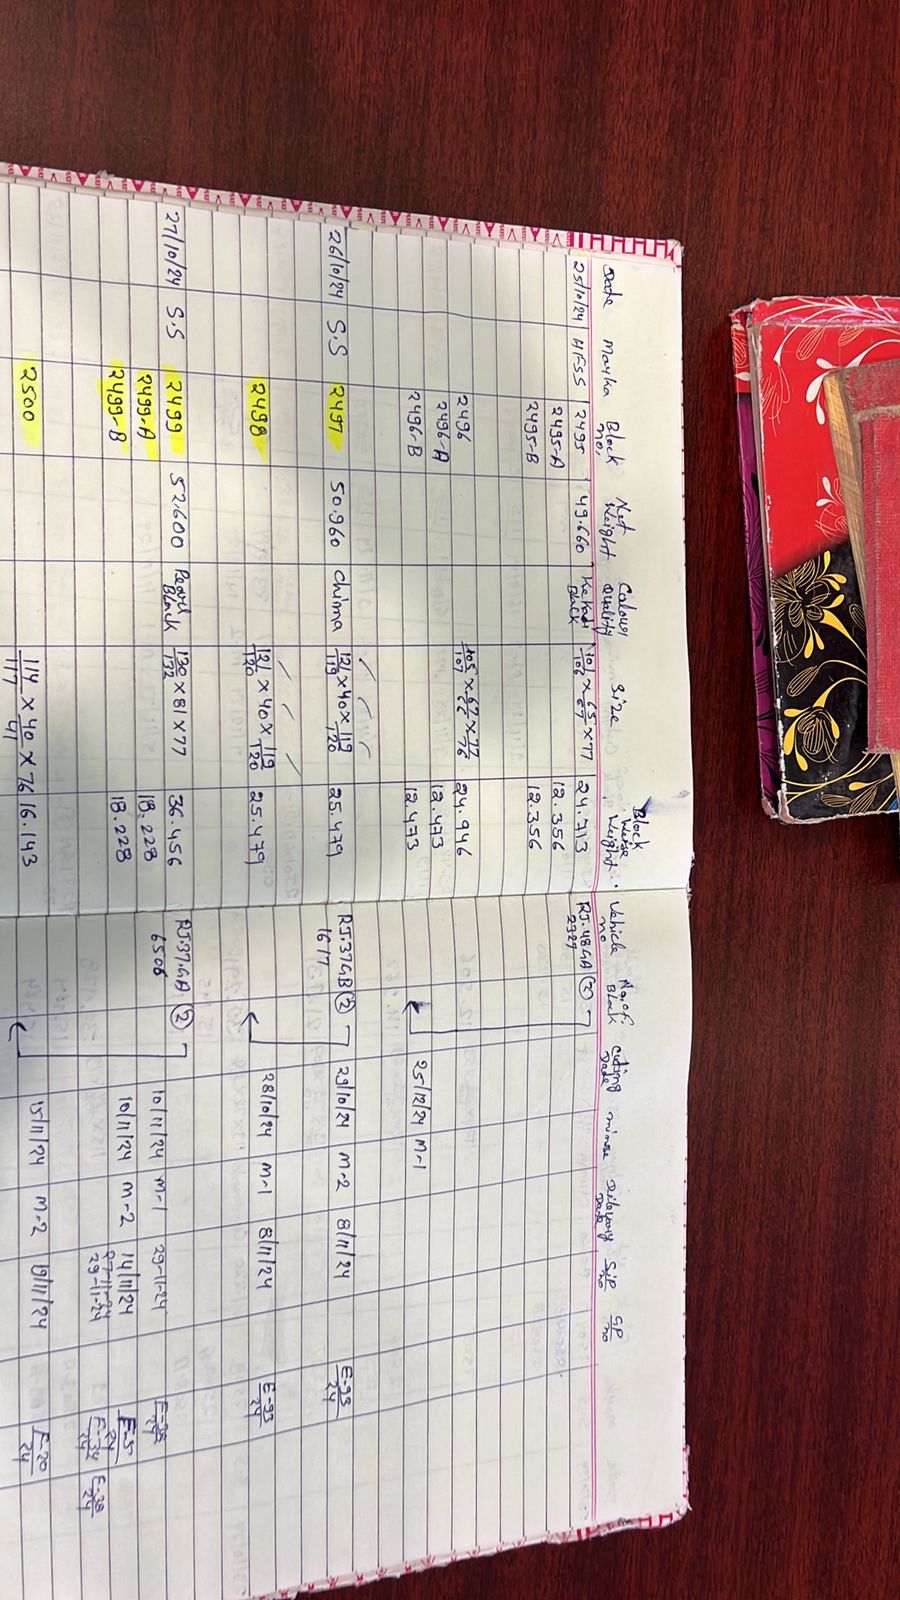 Date Marka Block no. Net Weight Colour Quality Size Block Weise Weight. Vehicle no No. of Block Cuting Date Dilevery Date GP no
25/10/24 HFSS 2495 49.660 Black 101/106 × 65/67 × 77 24.713 RJ.48GA 2327 (2)
2495-A 12.356
2495-B 12.356
2496 105/107 × 67/66 × 77/76 24.946
2496-A 12.473
2496-B 12.473 25/12/24 M-1
26/10/24 S.S 2497 50.960 chima 121/119 × 40 × 119/120 25.479 RJ.37GB 1617 (2) 29/10/24 M-2 8/11/24 E-93/24
2498 121/120 × 40 × 119/120 25.479 28/10/24 M-1 8/11/24 E-93/24
27/10/24 S.S 2499 52.600 Pearl Black 130/132 × 81 × 77 36.456 RJ.37.GA 6506 (2)
2499-A 18.228 10/11/24 M-1 29-11-24
2499-B 18.228 10/11/24 M-2 14/11/24 E-5/24
27-11-24 E-34/24
29-11-24 E-38/24
2500 114/117 × 40/41 × 76 16.143 15/11/24 M-2 19/11/24 E-20/24